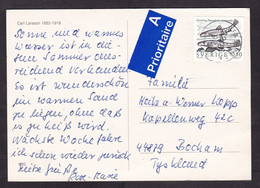 Carl Larsson 1853-1919
Sonne und warmes
Wasser ist in die-
sem Sommer aus-
reichend vorhanden.
Es ist wunderschön
im warmen Sand
zu liegen, ohne daß
es zu heiß wird.
Nächste Woche fahre
ich schon wieder zurück
Liebe Grüße
A
Prioritaire
SVERIGE
Familie
Werner
Kapellenweg 42c
44879 Bochum
Tyskland